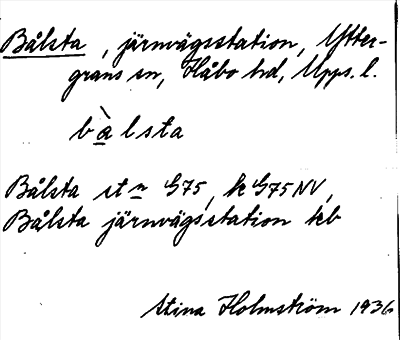 Bålsta, järnvägsstation, Ytter-
grans sn, Håbo hd, Upps. l.
bàlsta
Bålsta st n G75, k G75 NV,
Bålsta järnvägsstation tcb
Stina Holmström 1936